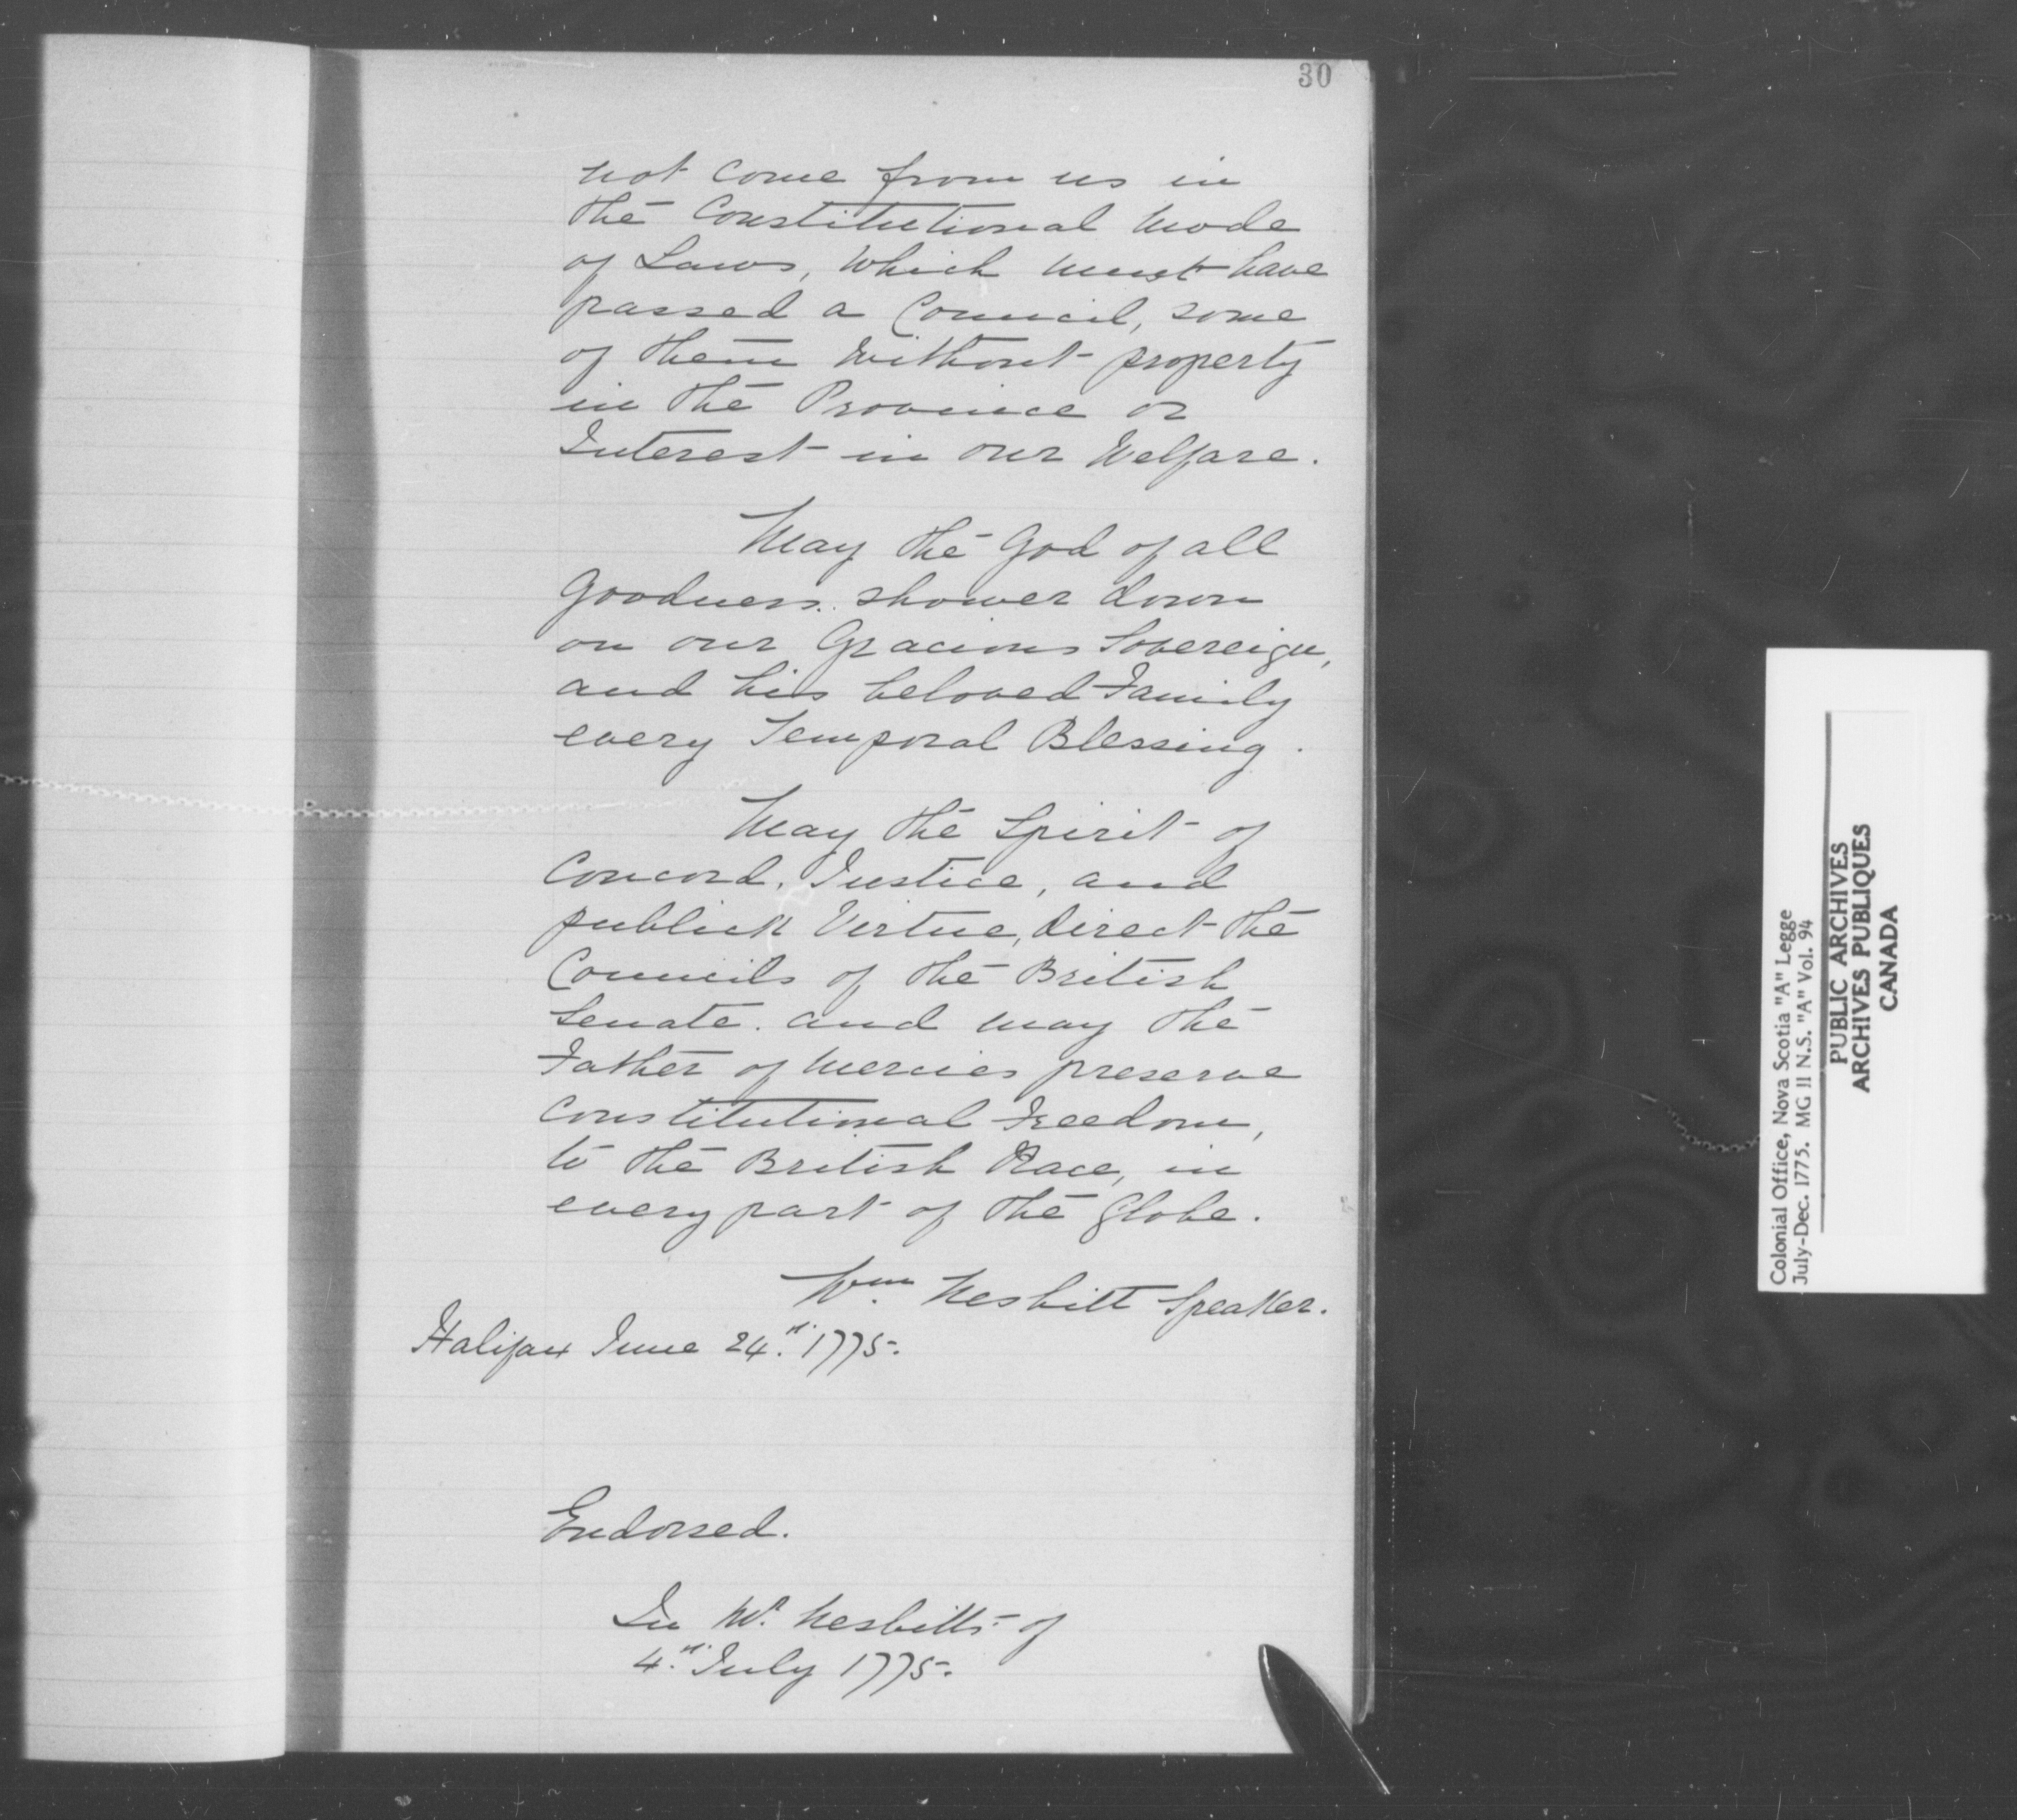 30
not come from us in
the Constitutional Mode
of Laws, Which must have
passed a Council, some
of them Without property
in the Province or
Interest in our Welfare.
May the God of all
Goodness. shower down
on our Gracious Sovereign,
and his beloved Family
every Temporal Blessing.
May the Spirit of
Concord, Justice, and
publick Virtue, direct the
Councils of the British
Senate. and may the
Father of Mercies preserve
Constitutional Freedom,
to the British Race, in
every part of the Globe.
Wm. Nesbitt Speaker.
Halifax June 24th. 1775.
Endorsed.
In Mr. Nesbitts of
4th. July 1775.
Colonial Office, Nova Scotia "A" Legge
July-Dec. 1775. MG 11 N.S. "A" Vol. 94
PUBLIC ARCHIVES
ARCHIVES PUBLIQUES
CANADA